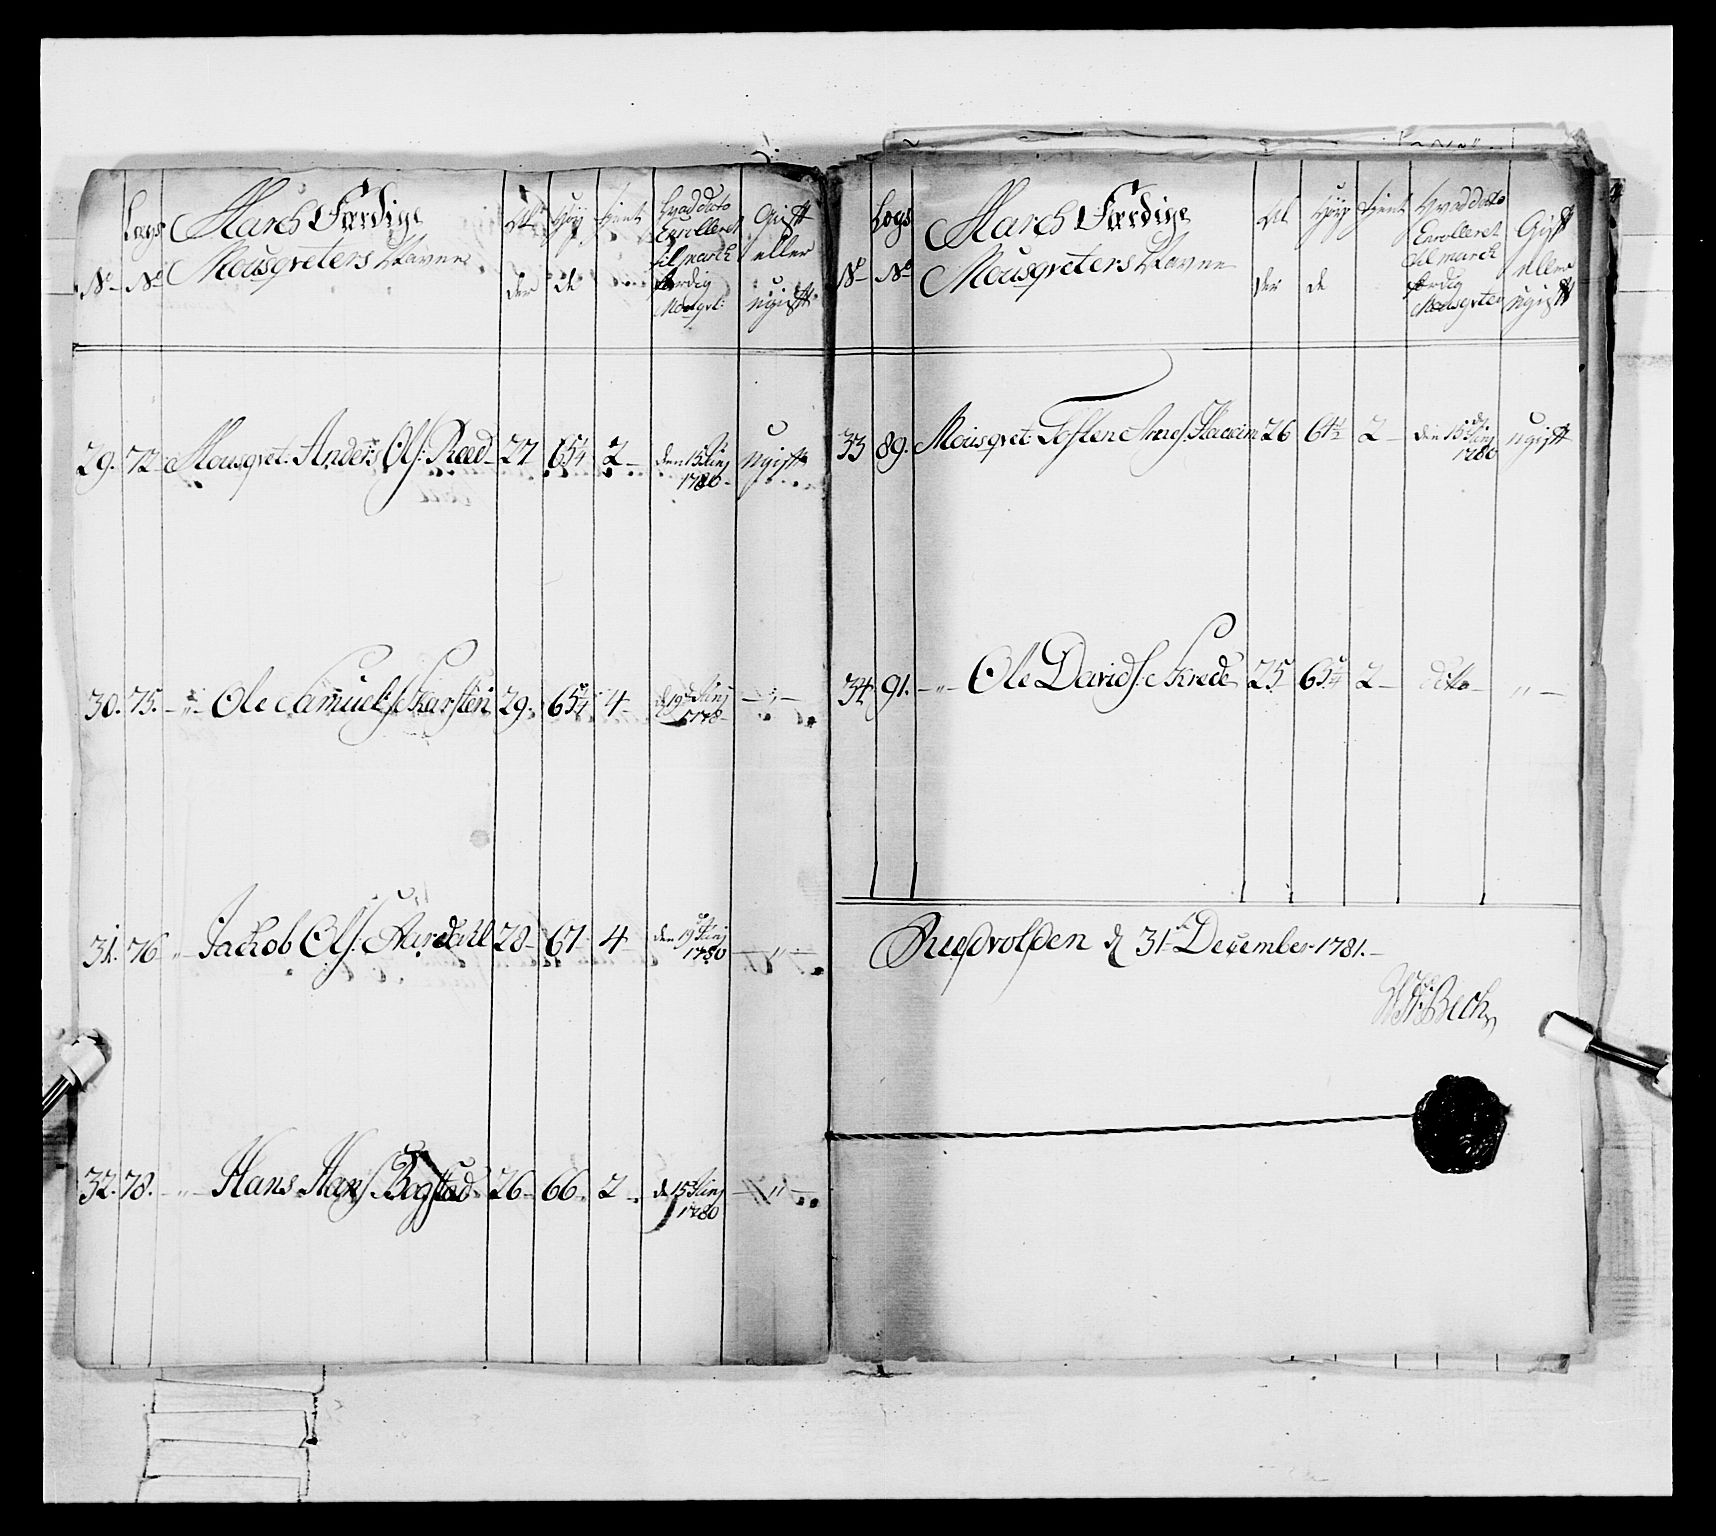 No Lægs No March Færdige Mousqveters Navne Al der Høy de tient Hvad dato Enrolleret til march færdig Mousqt: Gift eller ugift
29. 72 Mousqvet. Anders Ols: Reed 27 65¼ 2 den 15 Junj 1780 ugift
30. 75. " Ole Samuels: Skarsten 29 65¼ 4 d 19 Junj 1778 "
31. 76 " Jackob Ols: Aardahl 28 67 4 den 19 Junj 1780 "
32. 78. " Hans Hans: Bogstad 26 66 2 d 15 Junj 1780 "
No Logs No March Færdige Mousqveters Navne Al der Høy de tient Hvad dato Enrolleret til march færdig Mousqveter Gift eller ugift
33 89. Mousqvet Tosten 26 2 den 15 Junj 1780 ugift
34 91. " Ole Davids: Skrede 25 65¼ 2 dito "
d 31 December 1781.
Bech